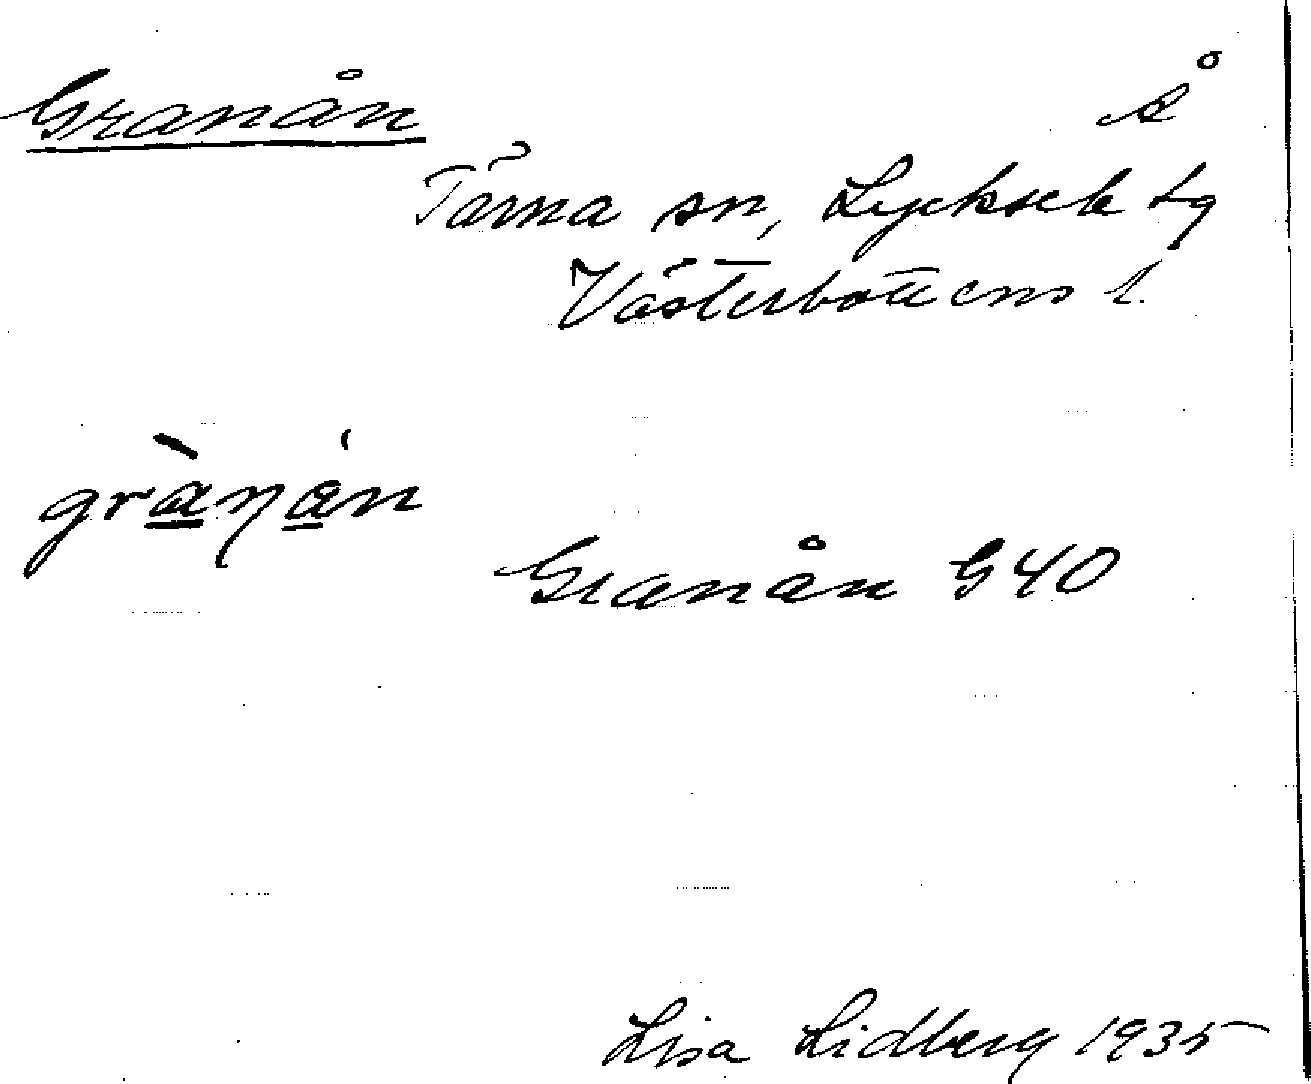 Granån
Å
Tärna sn, Lycksele tg
Västerbottens l.
grànán
Granån G40
Lisa Lidberg 1935